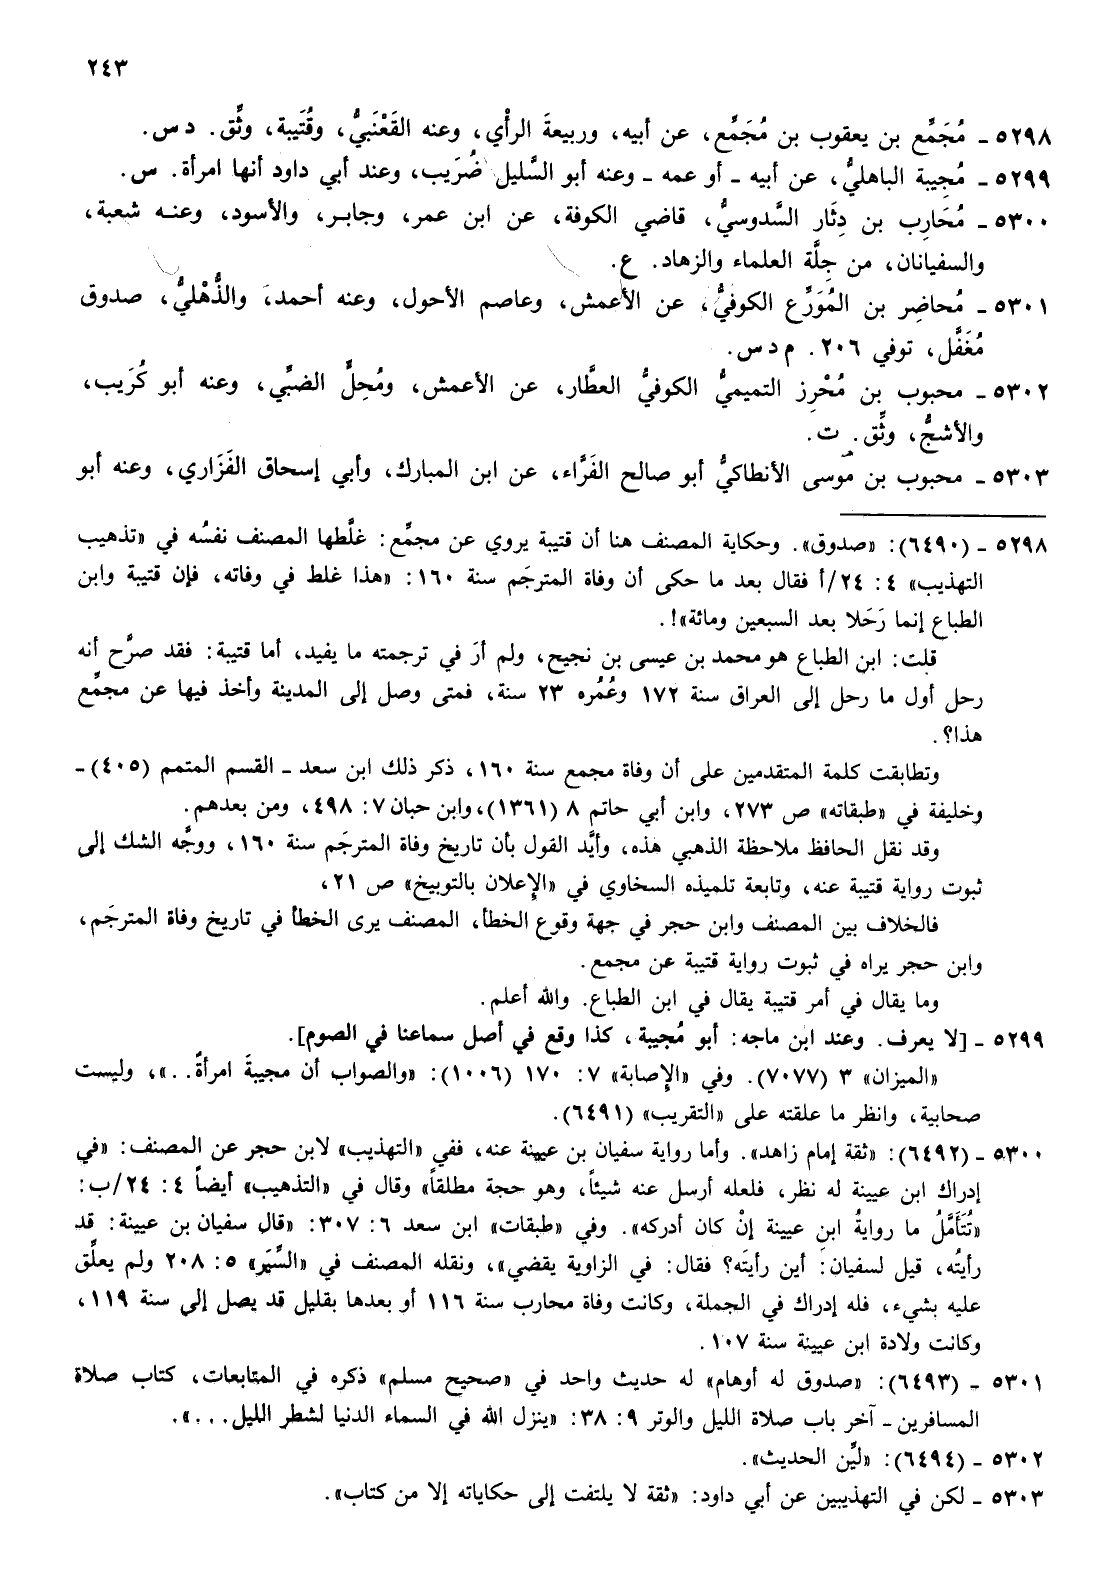 ٢٤٣
٥٢٩٨ ـ مُجَمِّع بن يعقوب بن مُجَمِّع، عن أبيه، وربيعةَ الرأْي، وعنه القَعْنَبيُّ، وقُتَيبة، وثِّق. د س.
٥٢٩٩ ـ مُجيبة الباهليُّ، عن أبيه ـ أو عمه ـ وعنه أبو السَّليل ضُرَيب، وعند أبي داود أنها امرأة. س.
٥٣٠٠ ـ مُحَارِب بن دِثَار السَّدوسيُّ، قاضي الكوفة، عن ابن عمر، وجابـر، والأسود، وعنـه شعبة،
والسفيانان، من جِلَّة العلماء والزهاد. ع.
٥٣٠١ ـ مُحاضِر بن المُوَرِّع الكوفيُّ، عن الأعمش، وعاصم الأحول، وعنه أحمد، والذُّهْليُّ، صدوق
مُغَفَّل، توفي ٢٠٦. م د س.
٥٣٠٢ ـ محبوب بن مُحْرِز التميميُّ الكوفيُّ العطَّار، عن الأعمش، ومُحِلٍّ الضبِّي، وعنه أبو كُرَيب،
والأشجُّ، وثِّق. ت.
٥٣٠٣ ـ محبوب بن موسى الأنطاكيُّ أبو صالح الفَرَّاء، عن ابن المبارك، وأبي إسحاق الفَزَاري، وعنه أبو
٥٢٩٨ ـ (٦٤٩٠): «صدوق». وحكاية المصنف هنا أن قتيبة يروي عن مجمِّع: غلَّطها المصنف نفسُه في «تذهيب
التهذيب» ٤: ٢٤/أ فقال بعد ما حكى أن وفاة المترجَم سنة ١٦٠: «هذا غلط في وفاته، فإن قتيبة وابن
الطباع إنما رَحَلا بعد السبعين ومائة»!.
قلت: ابن الطباع هو محمد بن عيسى بن نجيح، ولم أرَ في ترجمته ما يفيد، أما قتيبة: فقد صرَّح أنه
رحل أول ما رحل إلى العراق سنة ١٧٢ وعُمُره ٢٣ سنة، فمتى وصل إلى المدينة وأخذ فيها عن مجمِّع
هذا؟.
وتطابقت كلمة المتقدمين على أن وفاة مجمع سنة ١٦٠، ذكر ذلك ابن سعد ـ القسم المتمم (٤٠٥)ـ
وخليفة في «طبقاته» ص ٢٧٣، وابن أبي حاتم ٨ (١٣٦١)، وابن حبان ٧: ٤٩٨، ومن بعدهم.
وقد نقل الحافظ ملاحظة الذهبي هذه، وأيَّد القول بأن تاريخ وفاة المترجَم سنة ١٦٠، ووجَّه الشك إلى
ثبوت رواية قتيبة عنه، وتابعة تلميذه السخاوي في «الإعلان بالتوبيخ» ص ٢١،
فالخلاف بين المصنف وابن حجر في جهة وقوع الخطأ، المصنف يرى الخطأ في تاريخ وفاة المترجَم،
وابن حجر يراه في ثبوت رواية قتيبة عن مجمع.
وما يقال في أمر قتيبة يقال في ابن الطباع. والله أعلم.
٥٢٩٩ ـ [لا يعرف. وعند ابن ماجه: أبو مُجيبة، كذا وقع في أصل سماعنا في الصوم].
«الميزان» ٣ (٧٠٧٧). وفي «الإصابة» ٧: ١٧٠ (١٠٠٦): «والصواب أن مجيبةَ امرأةٌ. . .»، وليست
صحابية، وانظر ما علقته على «التقريب» (٦٤٩١).
٥٣٠٠ ـ (٦٤٩٢): «ثقة إمام زاهد». وأما رواية سفيان بن عيينة عنه، ففي «التهذيب» لابن حجر عن المصنف: «في
إدراك ابن عيينة له نظر، فلعله أرسل عنه شيئاً، وهو حجة مطلقاً» وقال في «التذهيب» أيضاً ٤: ٢٤/ب:
«تُتَأَمَّلُ ما روايةُ ابنِ عيينة إنْ كان أدركه». وفي «طبقات» ابن سعد ٦: ٣٠٧: «قال سفيان بن عيينة: قد
رأيتُه، قيل لسفيان: أين رأيتَه؟ فقال: في الزاوية يقضي»، ونقله المصنف في «السِّيَر» ٥: ٢٠٨ ولم يعلِّق
عليه بشيء، فله إدراك في الجملة، وكانت وفاة محارب سنة ١١٦ أو بعدها بقليل قد يصل إلى سنة ١١٩،
وكانت ولادة ابن عيينة سنة ١٠٧.
٥٣٠١ ـ (٦٤٩٣): «صدوق له أوهام» له حديث واحد في «صحيح مسلم» ذكره في المتابعات، كتاب صلاة
المسافرين ـ آخر باب صلاة الليل والوتر ٩: ٣٨: «ينزل الله في السماء الدنيا لشطر الليل. . .».
٥٣٠٢ ـ (٦٤٩٤): «ليِّن الحديث».
٥٣٠٣ ـ لكن في التهذيبين عن أبي داود: «ثقة لا يلتفت إلى حكاياته إلا من كتاب».